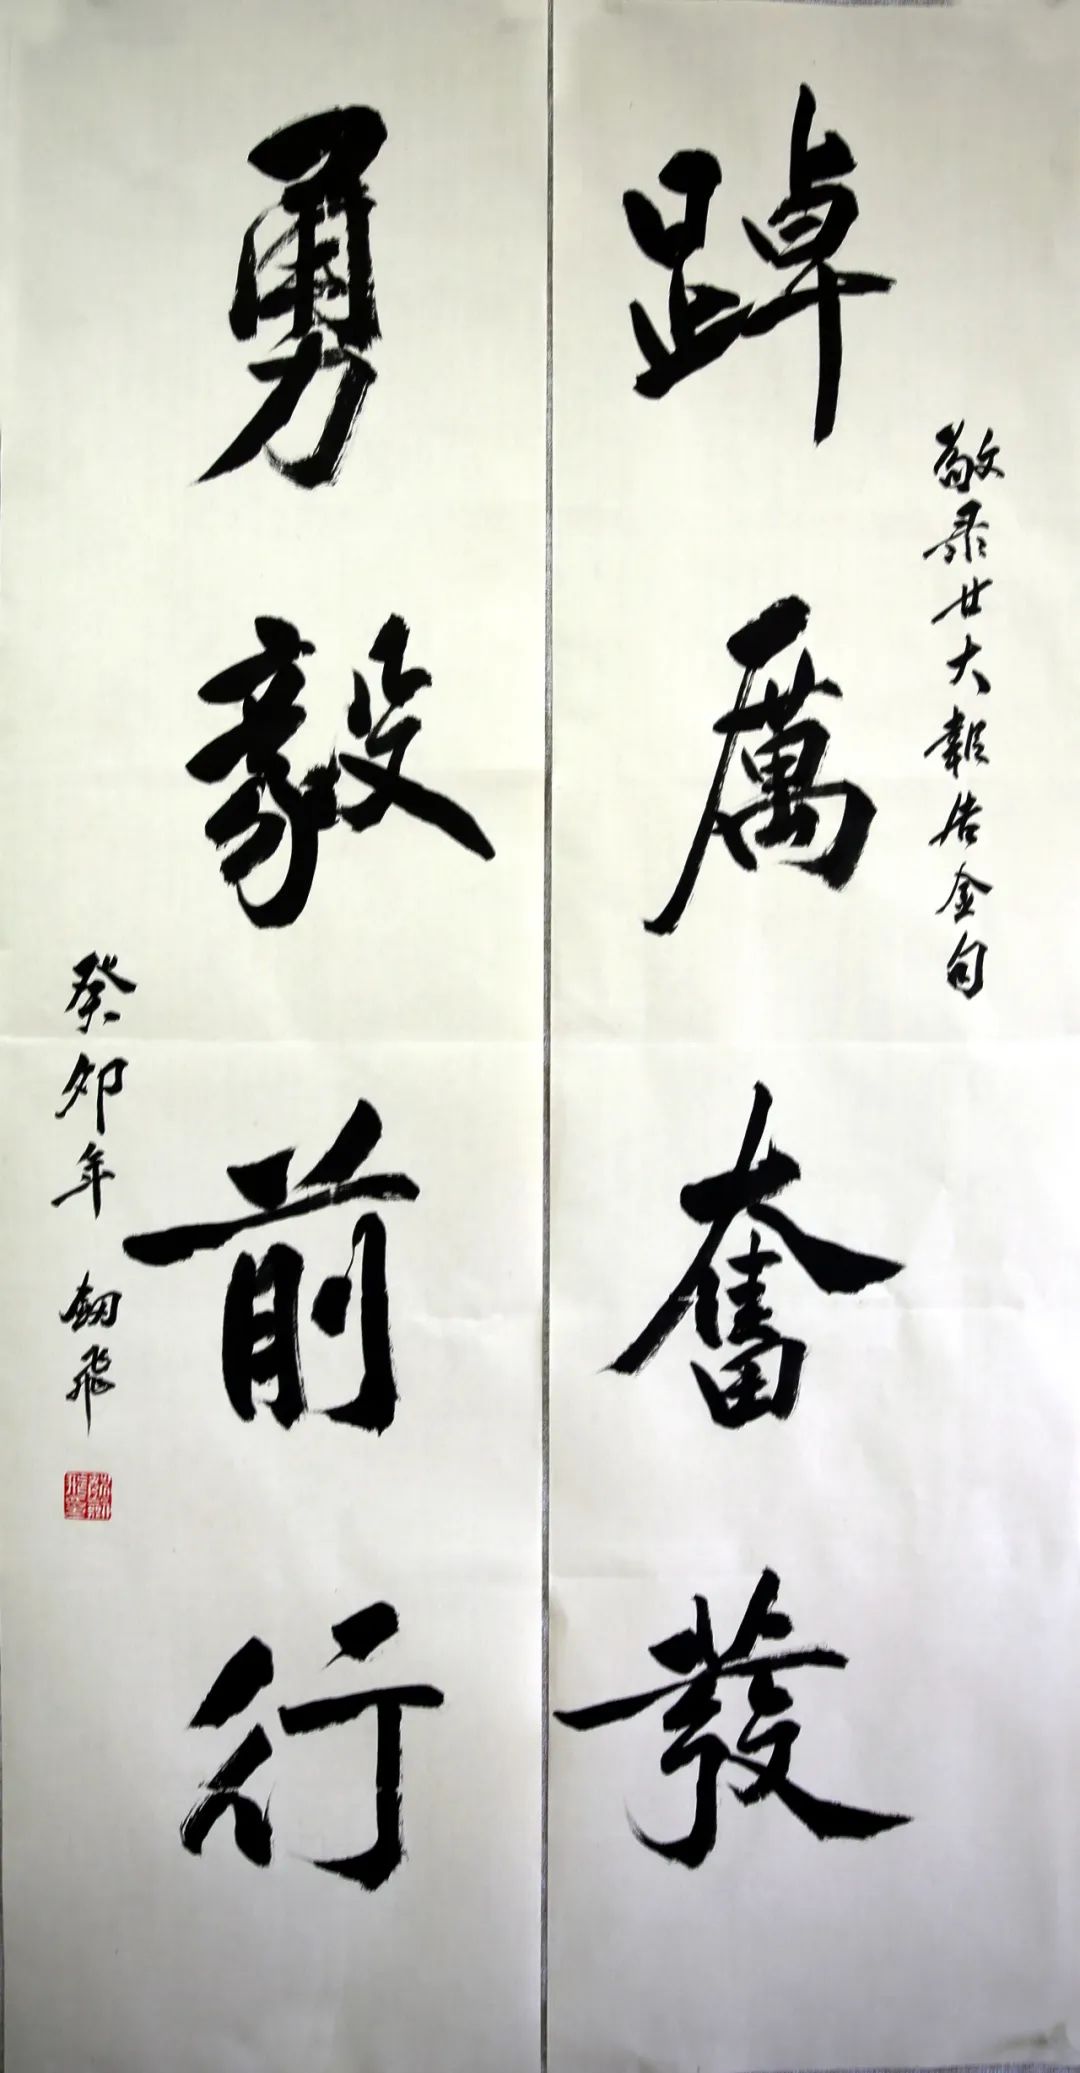 踔厲奮發
敬录廿大報告金句
勇毅前行
癸卯年 劒飛